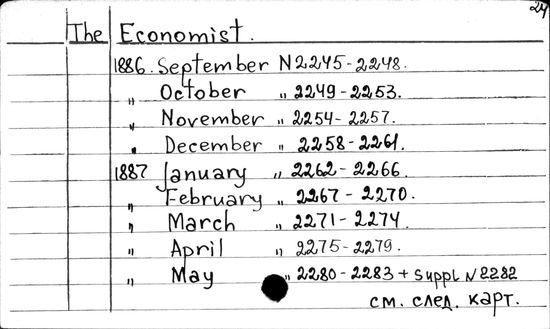 24
The Economist.
1886. September N 2245-2248.
„ October „ 2249-2253.
„ November „ 2254-2257.
„ December „ 2258-2261.
1887 January „ 2262-2266.
„ February „ 2267-2270.
„ March „ 2271-2274.
„ April „ 2275-2279.
„ May „ 2280-2283 + Suppl N 2282
см. след. карт.